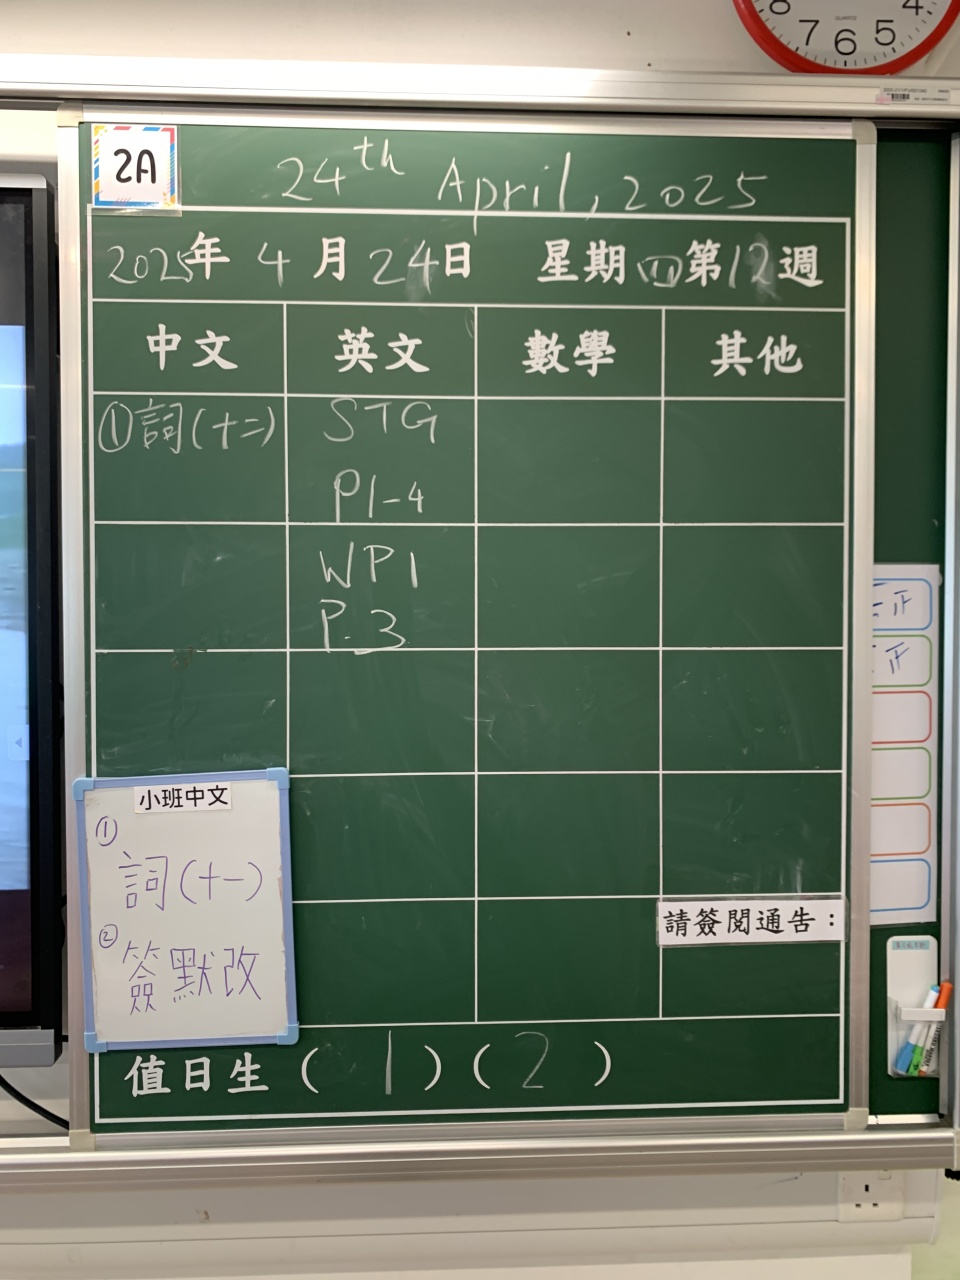 8 4
7 6 5
QUARTZ
2A
24th April, 2025
2025年 4月 24日 星期四第12週
中文 英文 數學 其他
①詞(十二)
STG
P1-4
WP1
P.3
小班中文
①
詞(十一)
②
簽默改
請簽閱通告：
值日生( 1 )( 2 )
正
正